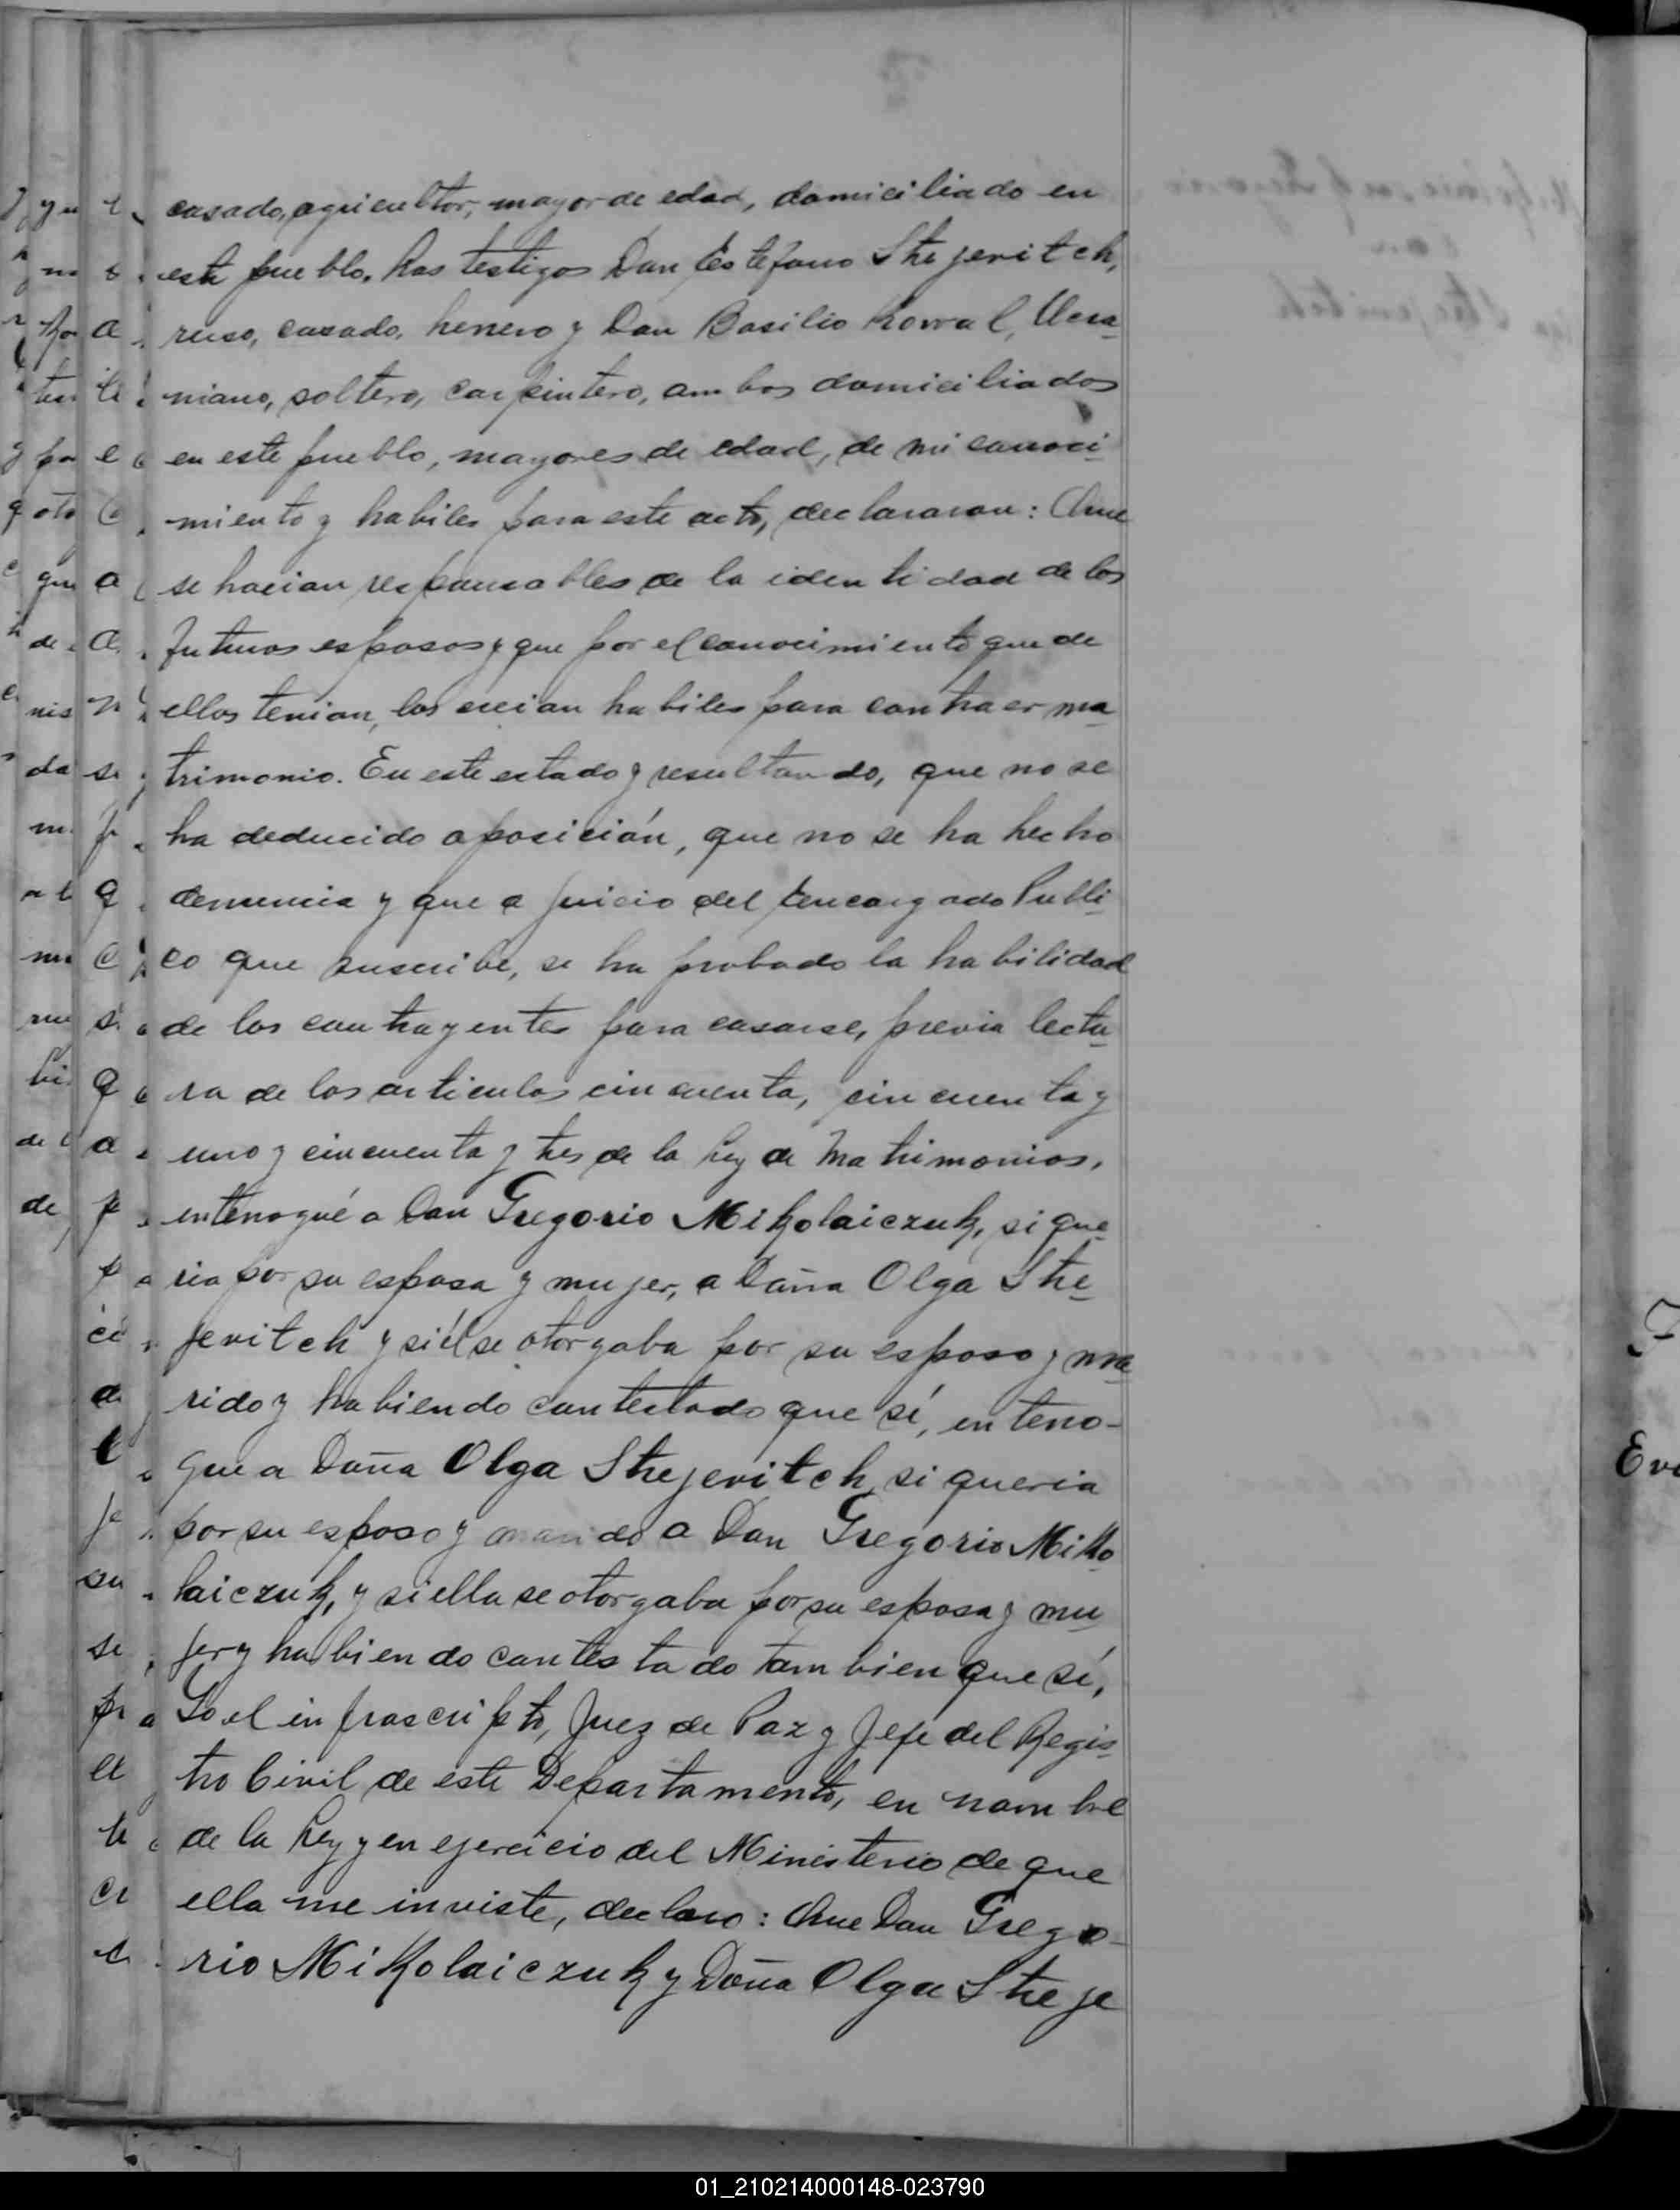 casado, agricultor, mayor de edad, domiciliado en
este pueblo. Los testigos Don Estéfano Strejevitch,
ruso, casado, herrero y Don Basilio Kowal, Ucra-
niano, soltero, carpintero, ambos domiciliados
en este pueblo, mayores de edad, de mi conoci-
miento y habiles para este acto, declararon: Que
se hacian responsables de la identidad de los
futuros esposos y que por el conocimiento que de
ellos tenian, los creian habiles para contraer ma-
trimonio. En este estado y resultando, que no se
ha deducido oposición, que no se ha hecho
denuncia y que a juicio del Encargado Publi-
co que suscribe, se ha probado la habilidad
de los contrayentes para casarse, previa lectu-
ra de los articulos cincuenta, cincuenta y
uno y cincuenta y tres de la Ley de Matrimonios,
interrogué a Don Gregorio Mikolaiczuk, si que-
ria por su esposa y mujer, a Doña Olga Stre-
jevitch y si él se otorgaba por su esposo y ma-
rido y habiendo contestado que sí, interro-
gue a Doña Olga Strejevitch, si queria
por su esposo y marido a Don Gregorio Miko
laiczuk, y si ella se otorgaba por su esposa y mu-
jer y habiendo contestado tambien que sí,
Yo el infrascripto, Juez de Paz y Jefe del Regis-
tro Civil de este Departamento, en nombre
de la Ley y en ejercicio del Ministerio de que
ella me inviste, declaro: Que Don Grego-
rio Mikolaiczuk y Doña Olga Streje
01_210214000148-023790